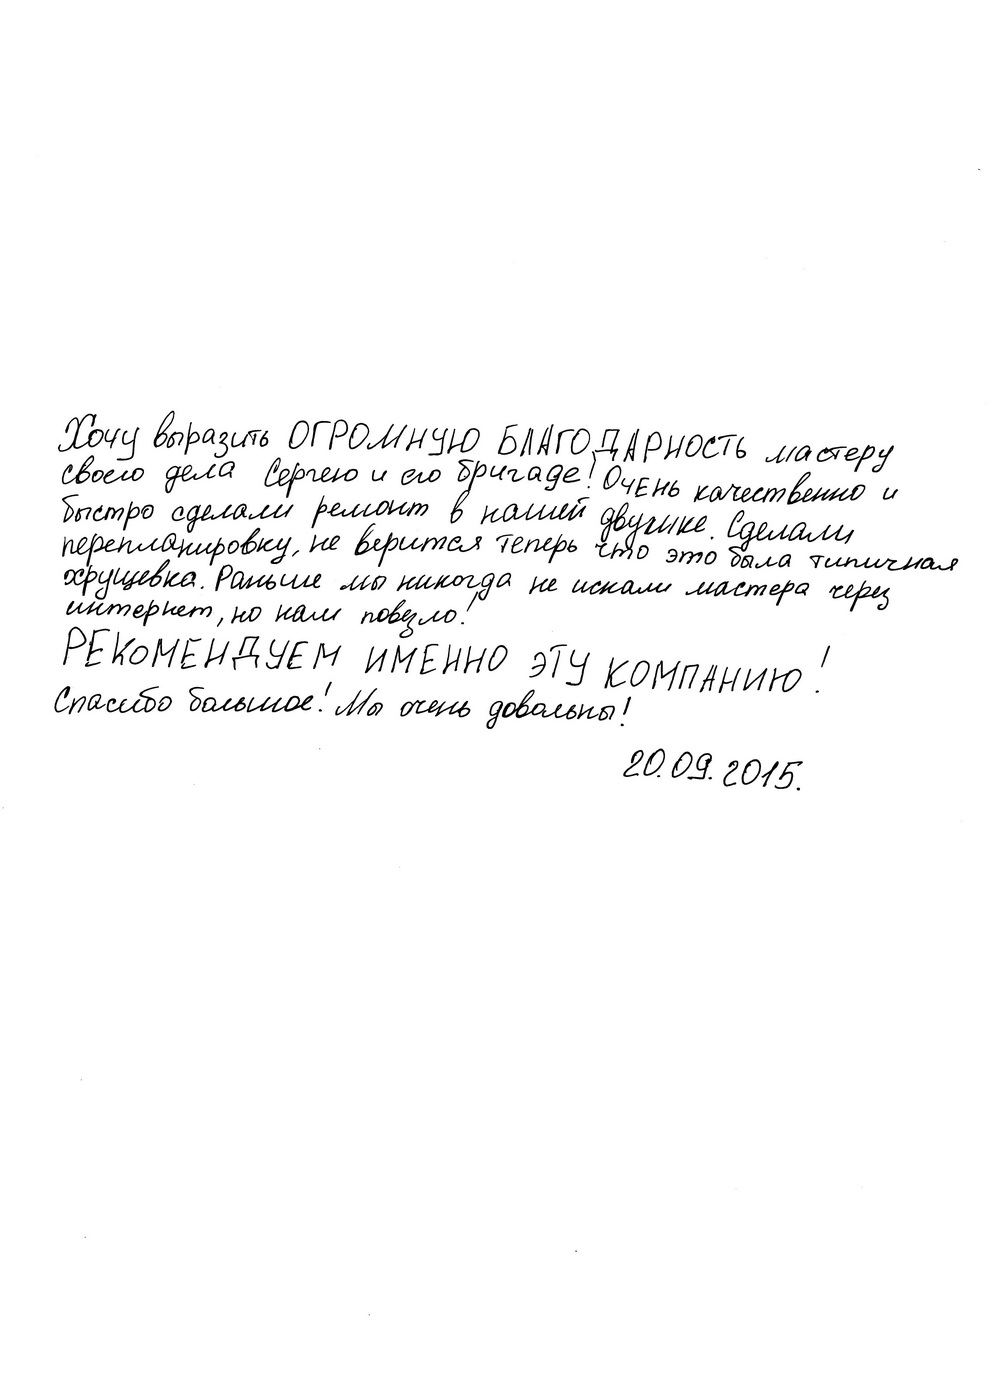 Хочу выразить ОГРОМНУЮ БЛАГОДАРНОСТЬ мастеру
своего дела Сергею и его бригаде! ОЧЕНЬ качественно и
быстро сделали ремонт в нашей двушке. Сделали
перепланировку, не верится теперь что это была типичная
хрущевка. Раньше мы никогда не искали мастера через
интернет, но нам повезло!
РЕКОМЕНДУЕМ ИМЕННО ЭТУ КОМПАНИЮ!
Спасибо большое! Мы очень довольны!
20.09.2015.